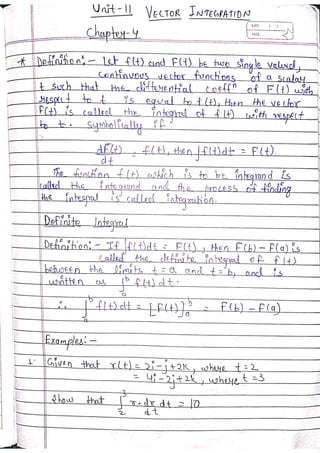 Unit-II VECTOR INTEGRATION
Chapter-4
* Definition:- Let f(t) and F(t) be two single valued,
continuous vector functions of a scalar
t such that the differential coeffn of F(t) with
respect to t is equal to f(t), then the vector
F(t) is called the integral of f(t) with respect
to t. Symbolically if
dF(t)/dt = f(t), then ∫f(t)dt = F(t).
The function f(t) which is to be integrand is
called the integrand and the process of finding
the integral is called integration.
Definite Integral
Definition:- If ∫f(t)dt = F(t), then F(b) - F(a) is
called the definite integral of f(t)
between the limits t=a and t=b, and is
written as ∫_a^b f(t)dt.
∴ ∫_a^b f(t)dt = [F(t)]_a^b = F(b) - F(a)
Examples:-
1. Given that r(t) = 2i-j+2k, where t=2
= 4i-2j+2k, where t=3
Show that ∫_2^3 r.dr/dt dt = 10